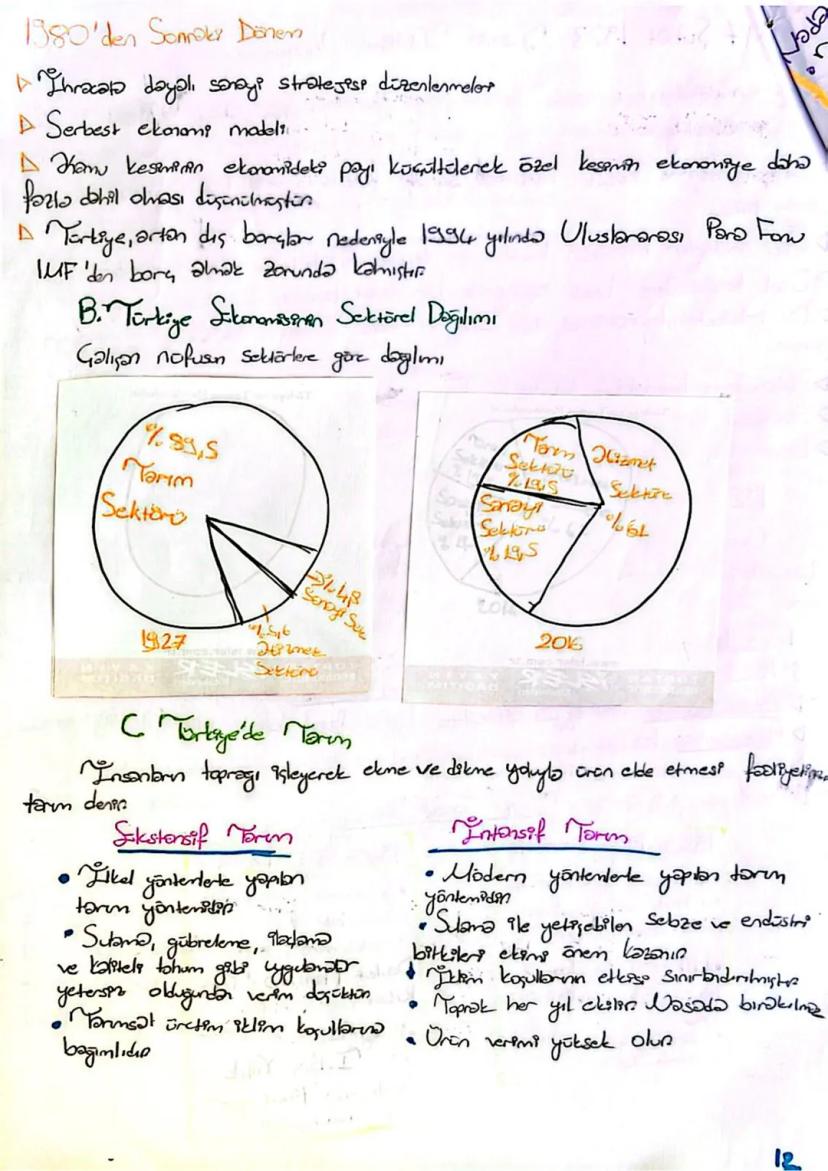 1980'den Sonraki Dönem
İhracata dayalı sanayi stratejisi düzenlenmeleri
Serbest ekonomi modeli
Kamu kesiminin ekonomideki payı küçültülerek özel kesimin ekonomiye daha
fazla dahil olması düşünülmüştür
Türkiye, artan dış borçlar nedeniyle 1994 yılında Uluslararası Para Fonu
IMF'den borç almak zorunda kalmıştır
B. Türkiye Ekonomisinin Sektörel Dağılımı
Çalışan nüfusun sektörlere göre dağılımı
% 89,5
Tarım
Sektörü
% 4,8
Sanayi Sek
% 5,6
Hizmet
Sektörü
1927
Tarım
Sektörü
% 19,5
Hizmet
Sektörü
% 61
Sanayi
Sektörü
% 19,5
2016
C Türkiye'de Tarım
İnsanların toprağı işleyerek ekme ve dikme yoluyla ürün elde etmesi faaliyetine
tarım denir
Ekstansif Tarım
• İlkel yöntemlerle yapılan
tarım yöntemidir
• Sulama, gübreleme, ilaçlama
ve kaliteli tohum gibi uygulamalar
yetersiz olduğundan verim düşüktür
• Tarımsal üretim iklim koşullarına
bağımlıdır
İntansif Tarım
• Modern yöntemlerle yapılan tarım
yöntemidir
• Sulama ile yetişebilen sebze ve endüstri
bitkileri ekimi önem kazanır
• İklim koşullarının etkisi sınırlandırılmıştır
• Toprak her yıl ekilir Nadasa bırakılmaz
• Ürün verimi yüksek olur
12